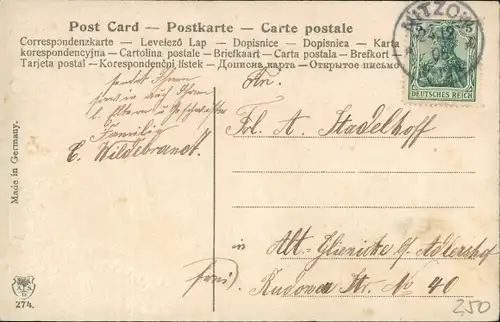 Post Card – Postkarte – Carte postale
Correspondenzkarte – Levelező Lap – Dopisnice – Dopisnica – Karta
korespondencyjna – Cartolina postale – Briefkaart – Carta postala – Brefkort –
Tarjeta postal – Korespondenčpi listek – Дописна карта – Открытое письмо
NITZOW
5
DEUTSCHES REICH
sendet Ihnen
sowie auch Ihren
l. Eltern u. Geschwister
Familie
E. Wildebrandt.
An.
Frl. A. Stadelhoff
in Alt-Glienicke b/ Adlershof
frei) Rudower Str. No 40
Made in Germany.
274.
250